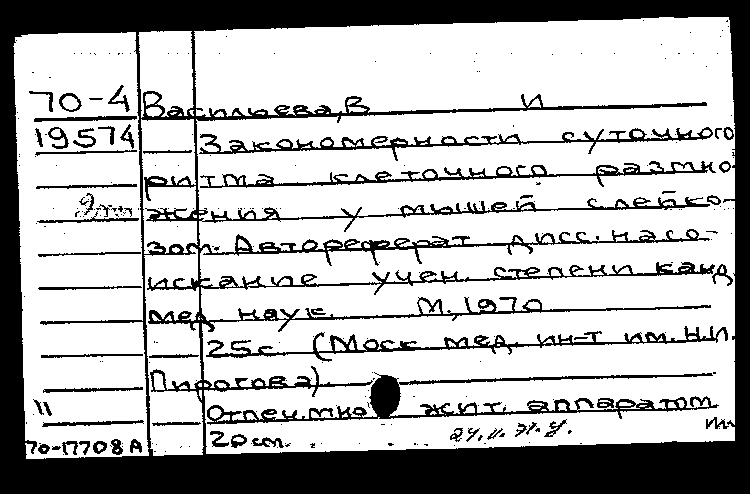 70-4 Васильева, В И
19574 Закономерности суточного
ритма клеточного размно-
жения у мышей с лейко-
зом. Автореферат дисс. на со-
искание учен. степени канд.
мед наук. М., 1970
25 с. (Моск мед. ин-т им. Н.И.
Пирогова).
" Отпеч. мно жит. аппаратом
70-17708 А 20 см.